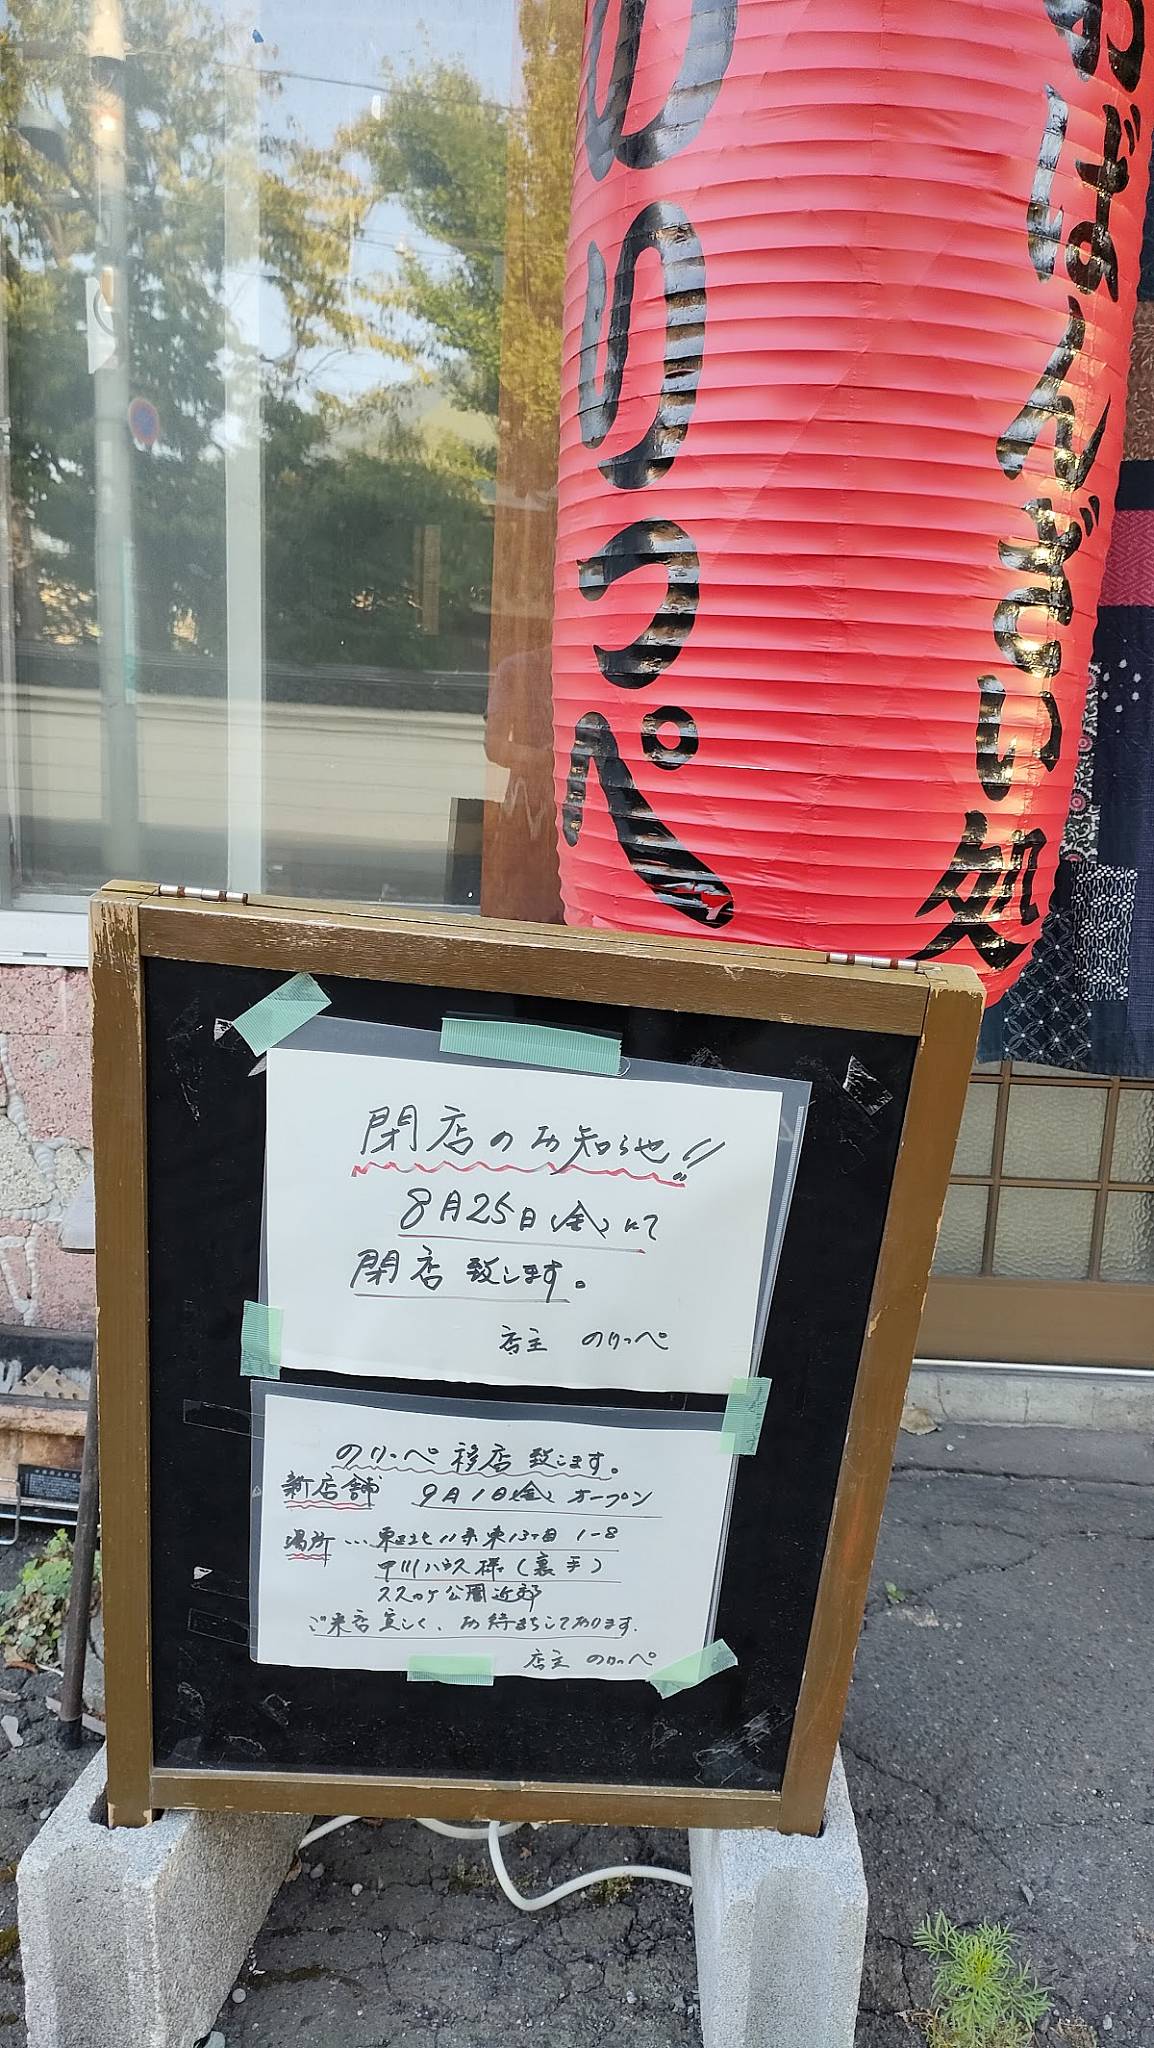 おばんざい処
のりっぺ
閉店のお知らせ!!
8月25日(金)にて
閉店致します。
店主 のりっぺ
のりっぺ移店致します。
新店舗 9月1日(金)オープン
場所…東区北11条東13丁目1-8
中川ハウス様(裏手)
ススロケ公園近郊
ご来店宜しく、お待ちしております。
店主 のりっぺ